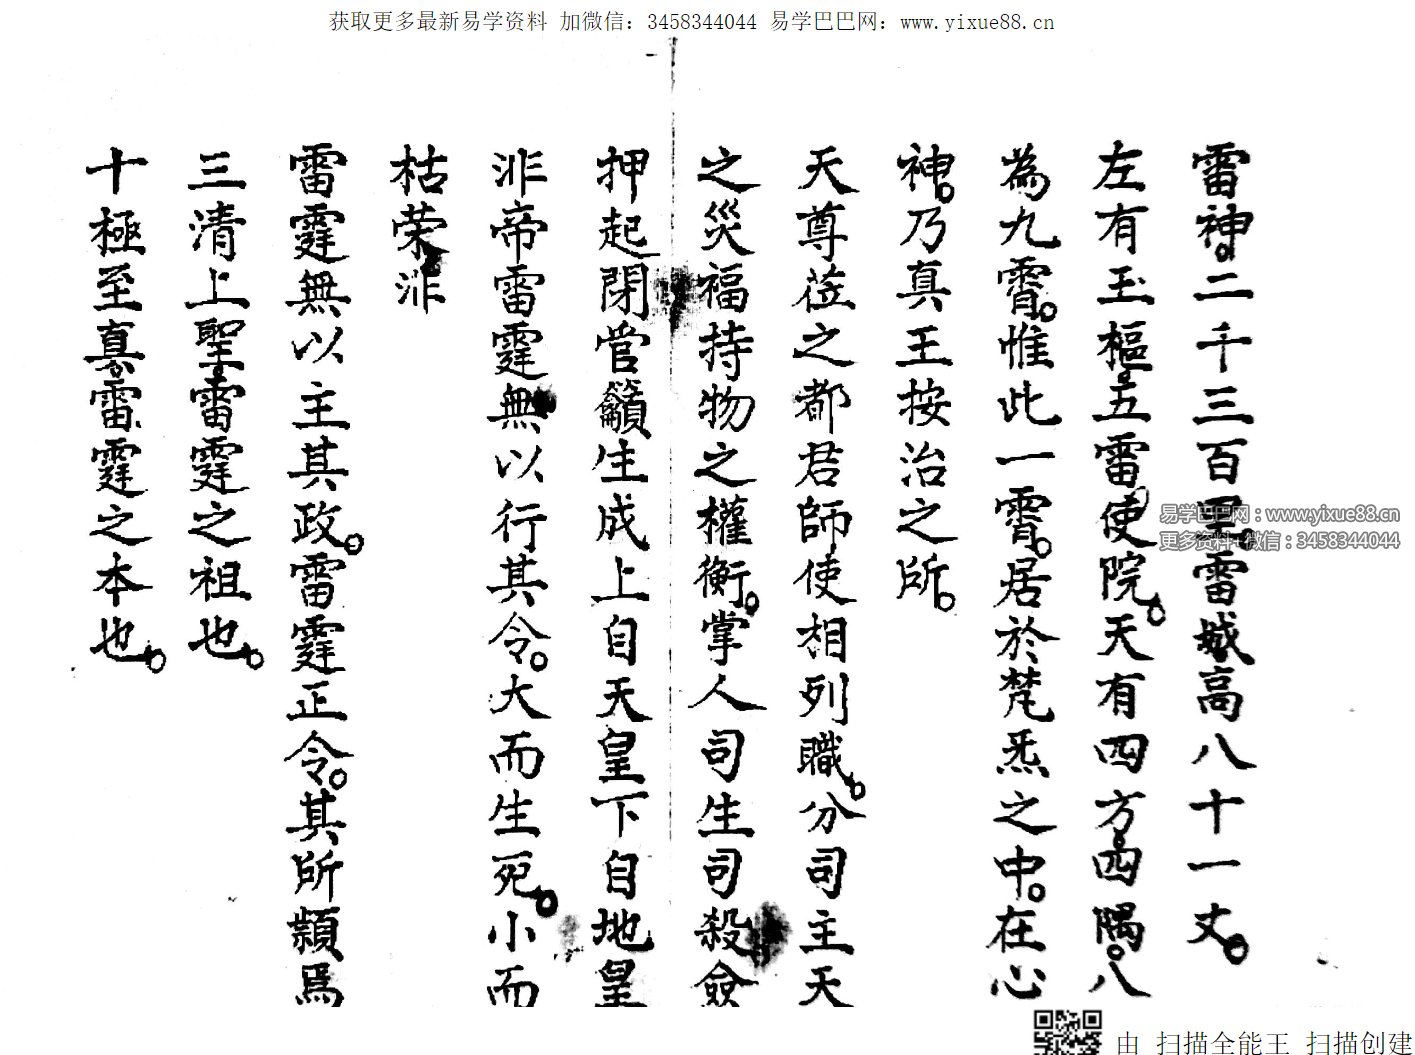 获取更多最新易学资料 加微信：3458344044 易学巴巴网：www.yixue88.cn
雷神二千三百里雷城高八十一丈
左有玉樞五雷使院天有四方四隅八
為九霄惟此一霄居於梵炁之中在心
神乃真王按治之所
天尊莅之都君師使相列職分司主天
之災福持物之權衡掌人司生司殺僉
押起閉管籲生成上自天皇下自地皇
非帝雷霆無以行其令大而生死小而
枯荣非
雷霆無以主其政雷霆正令其所頪焉
三清上聖雷霆之祖也
十極至真雷霆之本也
易学巴巴网：www.yixue88.cn
更多资料+微信：3458344044
由 扫描全能王 扫描创建